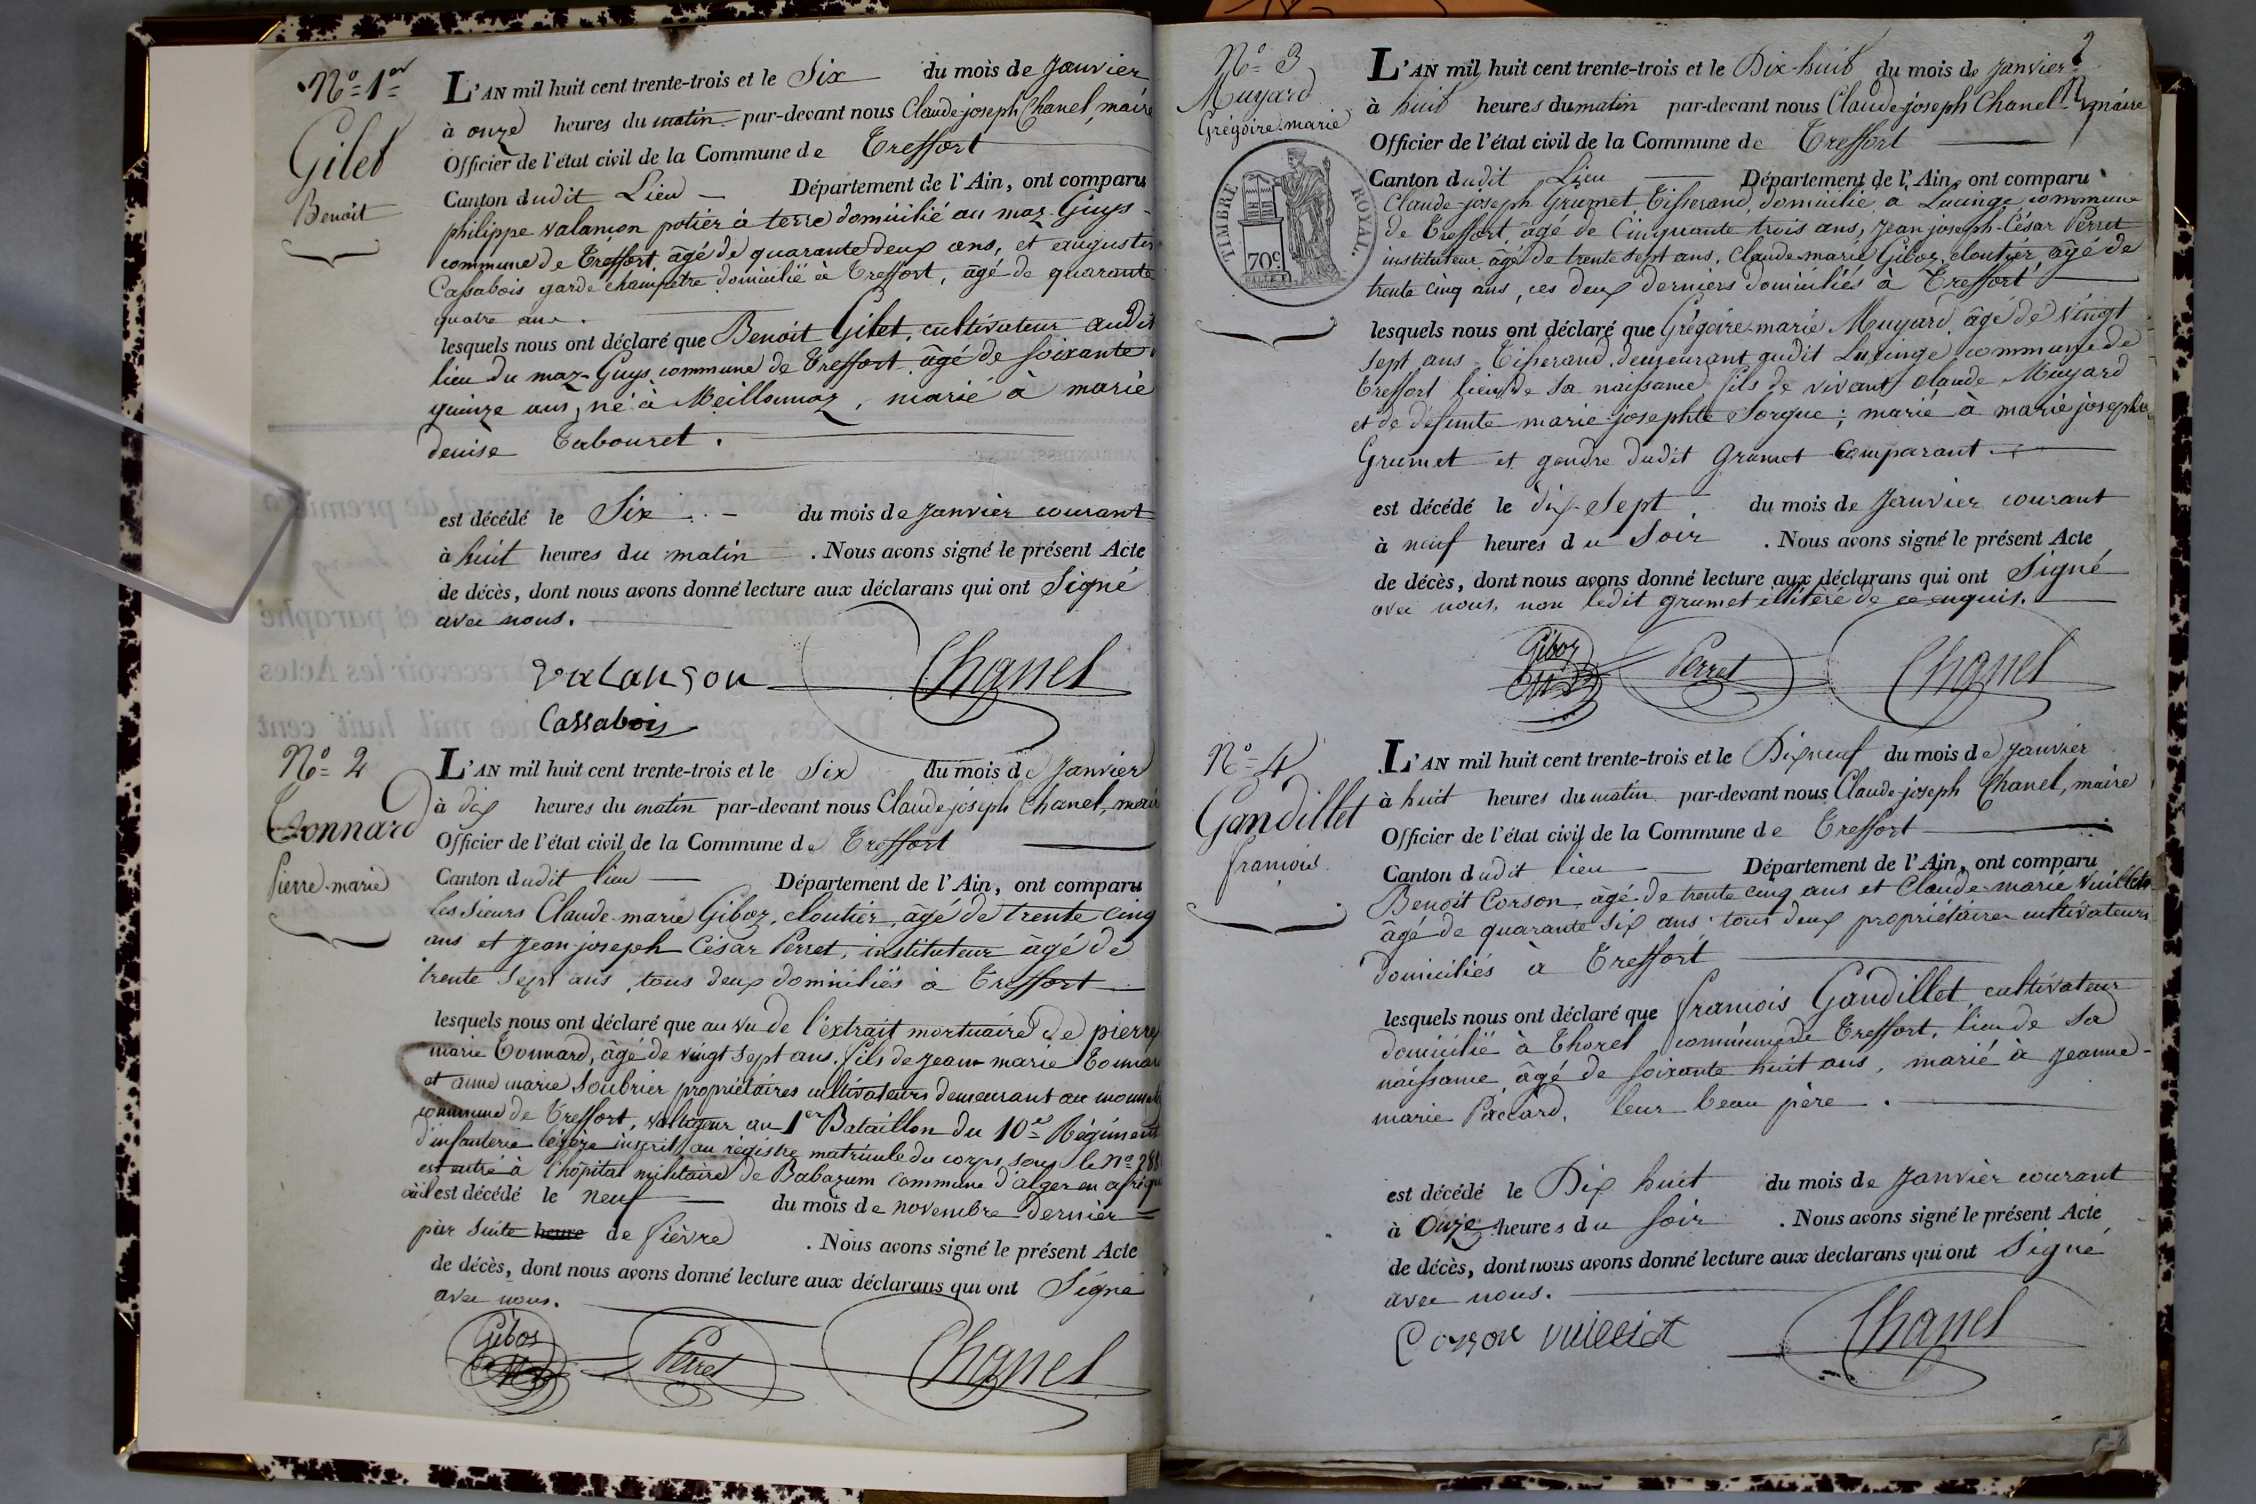 N.º 1.er
Gilet
Benoit
L'AN mil huit cent trente-trois et le Six du mois de Janvier
à onze heures du matin par-devant nous Claude-joseph Chanel, maire
Officier de l'état civil de la Commune de Treffort
Canton dudit Lieu Département de l'Ain, ont comparu
philippe valançon potier à terre domicilié au maz-Guys
commune de Treffort, âgé de quarante deux ans, et augustin
Cassabois garde champêtre domicilié à Treffort, âgé de quarante
quatre ans.
lesquels nous ont déclaré que Benoit Gilet, cultivateur audit
lieu du maz-Guys commune de Treffort âgé de soixante
quinze ans, né à Meillonnaz, marié à marie
denise Tabouret.
est décédé le Six du mois de Janvier courant
à huit heures du matin . Nous avons signé le présent Acte
de décès, dont nous avons donné lecture aux déclarans qui ont Signé
avec nous.
valançon Chanel
Cassabois
N.º 2
Tonnard
Pierre-marie
L'AN mil huit cent trente-trois et le Six du mois de Janvier
à dix heures du matin par-devant nous Claude-joseph Chanel, maire
Officier de l'état civil de la Commune de Treffort
Canton dudit lieu Département de l'Ain, ont comparu
les Sieurs Claude-marie Giboz, cloutier, âgé de trente cinq
ans et Jean-joseph César Perret, instituteur âgé de
trente sept ans, tous deux domiciliés à Treffort
lesquels nous ont déclaré que au vu de l'extrait mortuaire de pierre
marie Tonnard, âgé de vingt sept ans, fils de Jean marie Tonnard
et anne marie Soubrier propriétaires cultivateurs demeurant au
commune de Treffort, voltigeur au 1er Bataillon du 10e Régiment
d'infanterie légère inscrit au registre matricule du corps sous le Nº
est entré à l'hôpital militaire de Babazum commune d'alger en afrique
où il est décédé le neuf du mois de novembre dernier
par suite heure de fièvre . Nous avons signé le présent Acte
de décès, dont nous avons donné lecture aux déclarans qui ont Signé
avec nous.
Giboz Perret Chanel
2
N.º 3
Muyard
Grégoire-marie
TIMBRE ROYAL.
70c
L'AN mil huit cent trente-trois et le Dix-huit du mois de Janvier
à huit heures du matin par-devant nous Claude-joseph Chanel maire
Officier de l'état civil de la Commune de Treffort
Canton dudit Lieu Département de l'Ain, ont comparu
Claude-joseph Grumet Tisserand, domicilié à Lucinge commune
de Treffort, âgé de Cinquante trois ans, Jean joseph-César Perret
instituteur âgé de trente sept ans, Claude-marie Giboz, cloutier, âgé de
trente cinq ans, ces deux derniers domiciliés à Treffort
lesquels nous ont déclaré que Grégoire-marie Muyard, âgé de vingt
sept ans, Tisserand, demeurant audit Lucinge commune de
Treffort lieu de sa naissance fils de vivant Claude Muyard
et de défunte marie josephte Sorgue ; marié à marie josephte
Grumet et gendre dudit Grumet comparant.
est décédé le dix-sept du mois de Janvier courant
à neuf heures du Soir . Nous avons signé le présent Acte
de décès, dont nous avons donné lecture aux déclarans qui ont Signé
avec nous, non ledit Grumet illitéré de ce enquis.
Giboz Perret Chanel
N.º 4
Gandillet
françois
L'AN mil huit cent trente-trois et le Dix neuf du mois de Janvier
à huit heures du matin par-devant nous Claude-joseph Chanel, maire
Officier de l'état civil de la Commune de Treffort
Canton dudit lieu Département de l'Ain, ont comparu
Benoit Corson, âgé de trente cinq ans et Claude-marie Vuillet
âgé de quarante six ans, tous deux propriétaires cultivateurs
domiciliés à Treffort
lesquels nous ont déclaré que françois Gandillet, cultivateur
domicilié à Thorel commune de Treffort, lieu de sa
naissance, âgé de soixante huit ans, marié à Jeanne-
marie Paccard, leur beau père.
est décédé le Dix huit du mois de Janvier courant
à Onze heures du soir . Nous avons signé le présent Acte
de décès, dont nous avons donné lecture aux declarans qui ont Signé
avec nous.
Corson vuillet Chanel